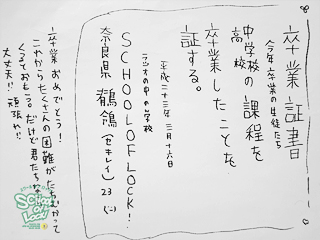 卒業証書
今年卒業の生徒たち
中学校の
高校
課程を
卒業したことを
証する。
平成二十三年三月十六日
ラジオの中の学校
SCHOOL OF LOCK!
奈良県 鶺鴒(セキレイ) 23 (二)
卒業おめでとう!
これからたくさんの困難がたちむかって
くるておもうの だけど君たちなら
大丈夫!! 頑張れ!!
SCHOOL
OF
LOCK!